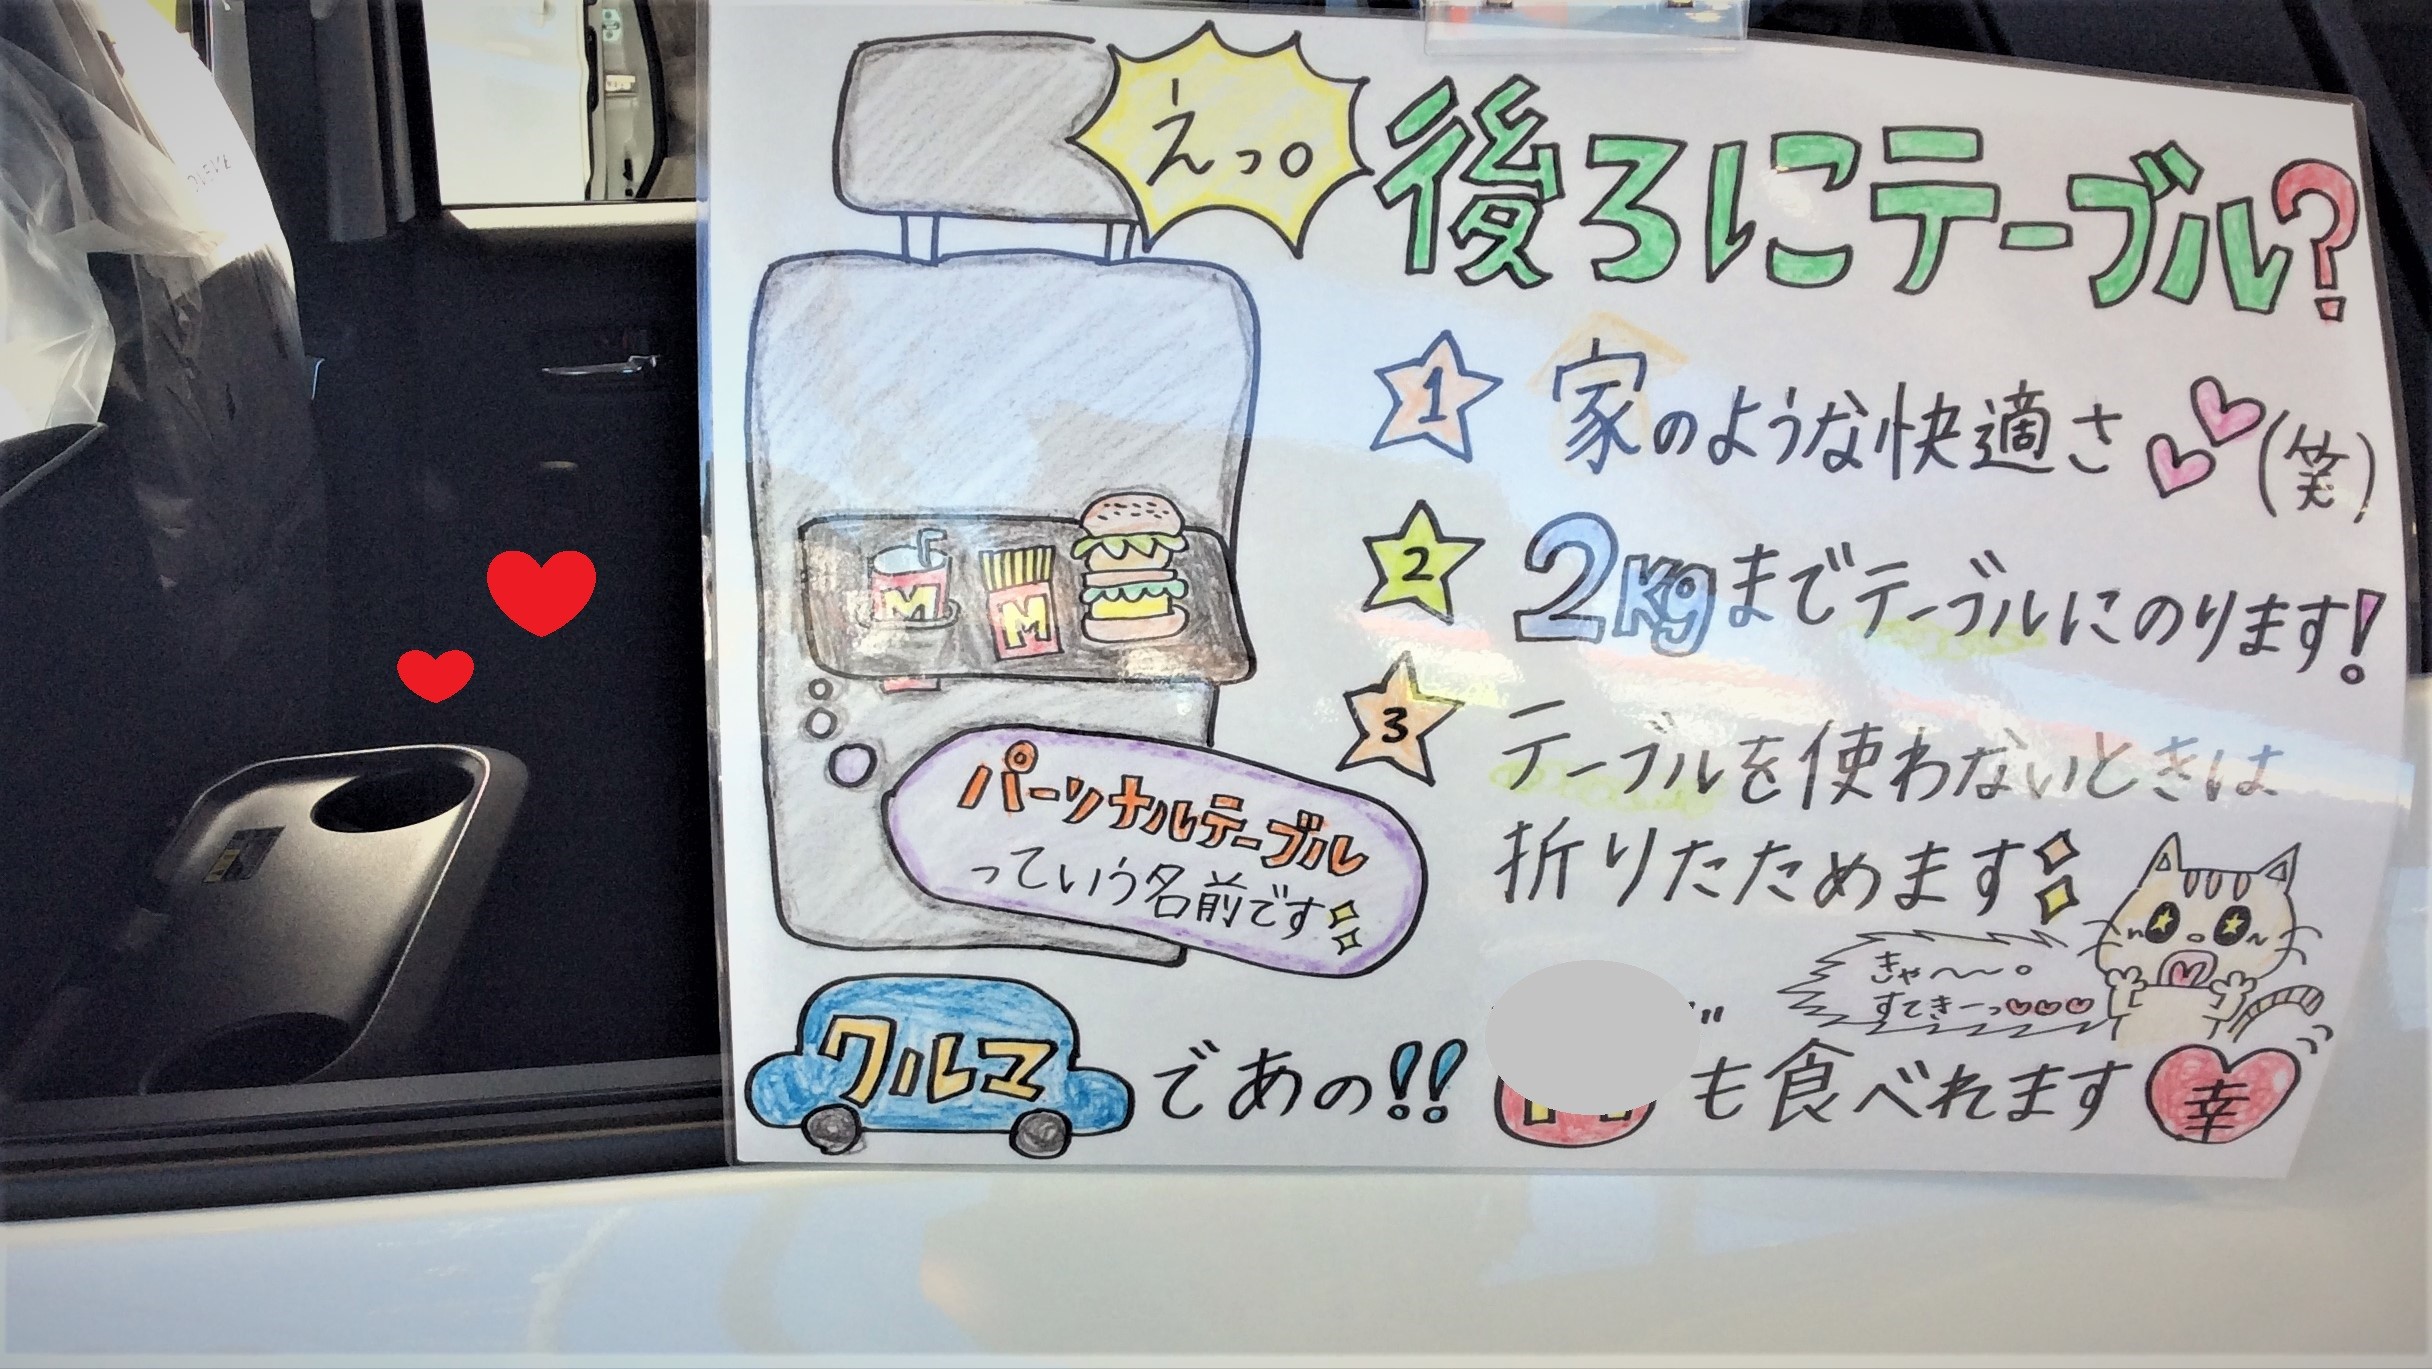 えっ。
後ろにテーブル?
1 家のような快適さ (笑)
2 2Kgまでテーブルにのります!
3 テーブルを使わないときは
折りたためます
M
M
パーソナルテーブル
っていう名前です
きゃ〜〜。
すてきーっ
クルマであの!! も食べれます 幸